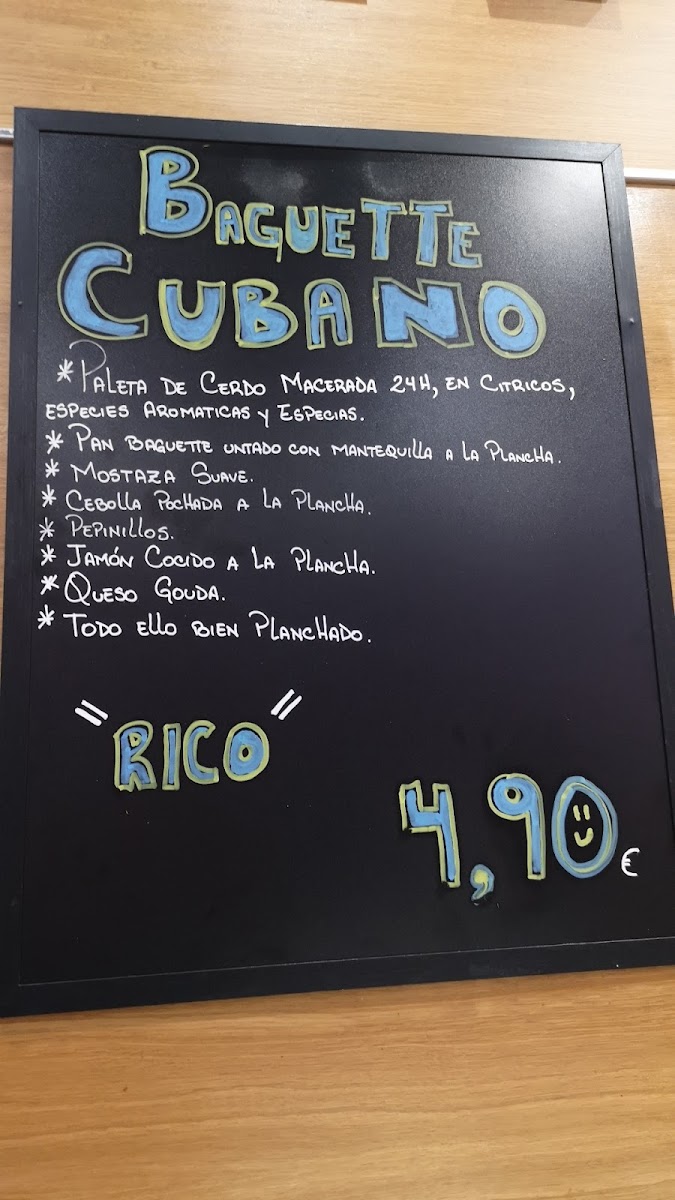 BAGUETTE
CUBANO
* PALETA DE CERDO MACERADA 24H, EN CITRICOS,
ESPECIES AROMATICAS Y ESPECIAS.
* PAN BAGUETTE UNTADO CON MANTEQUILLA A LA PLANCHA.
* MOSTAZA SUAVE.
* CEBOLLA POCHADA A LA PLANCHA.
* PEPINILLOS.
* JAMÓN COCIDO A LA PLANCHA.
* QUESO GOUDA.
* TODO ELLO BIEN PLANCHADO.
"RICO"
4,90€